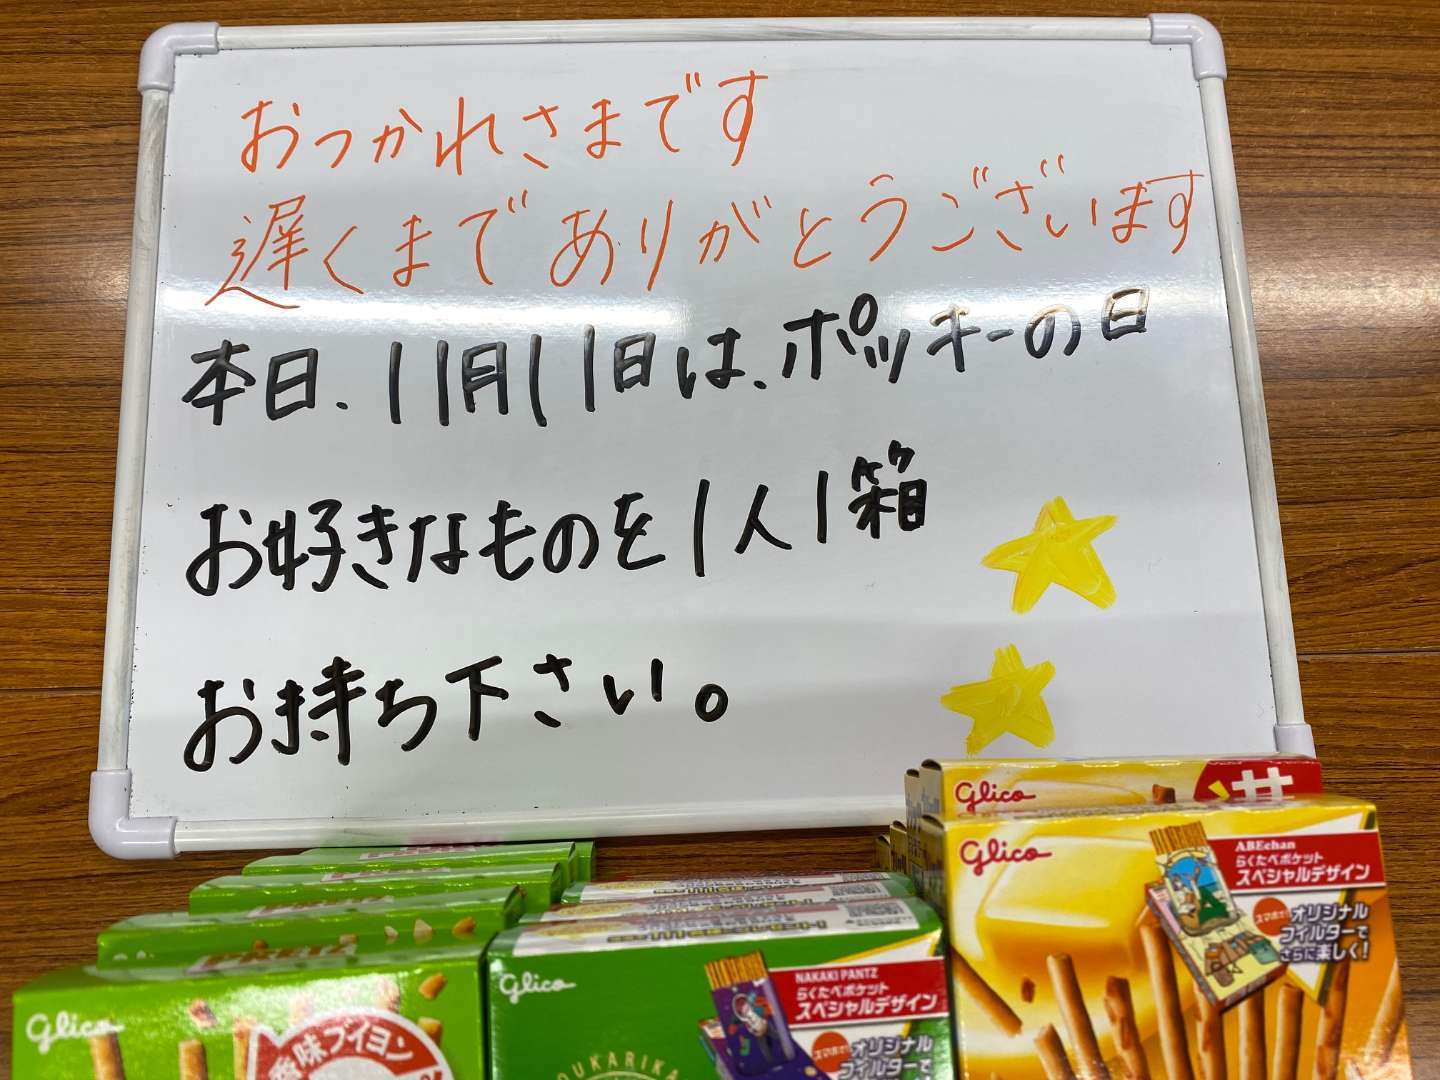 おつかれさまです
遅くまでありがとうございます
本日、11月11日は、ポッキーの日
お好きなものを1人1箱
お持ち下さい。
Glico
Glico
ABEchan
らくたべポケット
スペシャルデザイン
スマホで!
オリジナル
フィルターで
さらに楽しく!
Glico
NAKAKI PANTZ
らくたべポケット
スペシャルデザイン
スマホで!
オリジナル
フィルターで
Glico
味ブイヨン